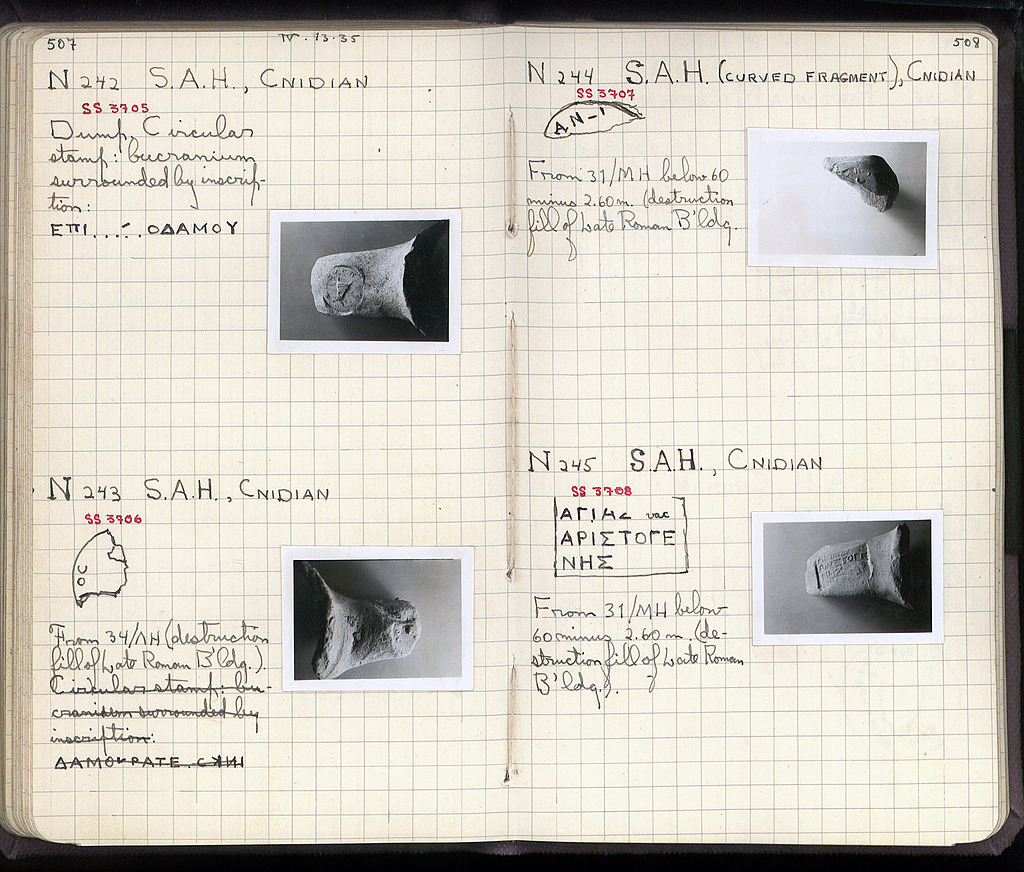 507
IV. 13. 35
N 242 S.A.H., CNIDIAN
SS 3705
Dump, Circular
stamp: bucranium
surrounded by inscrip-
tion:
ΕΠΙ...-.ΟΔΑΜΟΥ
N 243 S.A.H., CNIDIAN
SS 3706
From 34/ΛΗ (destruction
fill of Late Roman B'ldg.).
Circular stamp: bu-
cranium surrounded by
inscription:
508
N 244 S.A.H. (CURVED FRAGMENT), CNIDIAN
SS 3707
AN-1
From 31/MH below 60
minus 2.60 m. (destruction
fill of Late Roman B'ldg.
N 245 S.A.H., CNIDIAN
SS 3708
vac
ΑΡΙΣΤΟΓΕ
ΝΗΣ
From 31/MH below
60 minus 2.60 m. (de-
struction fill of Late Roman
B'ldg.).